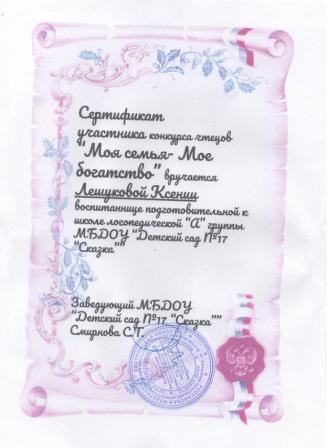 Сертификат
участника конкурса чтецов
"Моя семья- Мое
богатство" вручается
Лешуковой Ксении
воспитаннице подготовительной к
школе логопедической "А" группы
МБДОУ "Детский сад №17
"Сказка""
Заведующий МБДОУ
"Детский сад №17 "Сказка""
Смирнова С.Т.